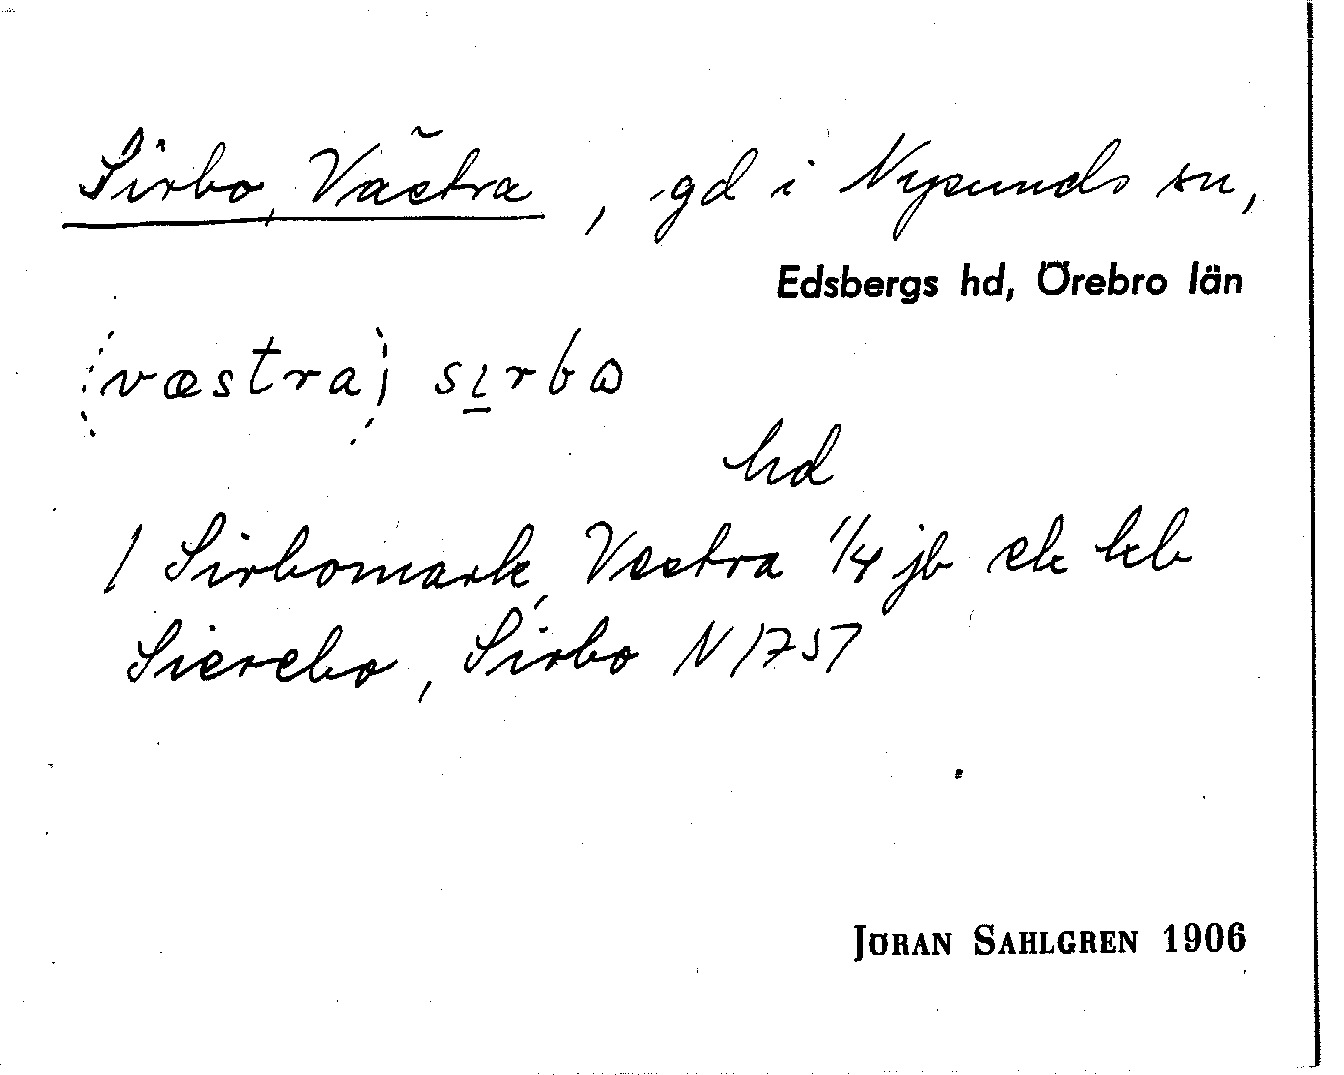 Sirbo, Västra, gd i Nysunds sn,
Edsbergs hd, Örebro län
(væstra) sɩrbɷ
hd
/ Sirbomark, Vestra 1/4 jb ek kb
Sierebo, Sirbo N 1757
JÖRAN SAHLGREN 1906